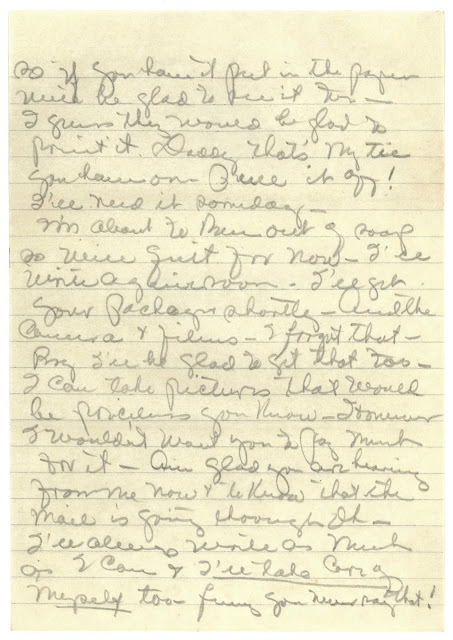 so if you haven't put in the paper
we'd be glad to see it too -
I guess they would be glad to
print it. Daddy that's my tie
you have on - off!
I'll need it someday -
I'm about to run out of soap
so will quit for now - I'll
write again soon - I'll get
your packages shortly - and the
camera & films - I forgot that -
Boy I'll be glad to get that too -
I can take pictures that would
be priceless you know - However
I wouldn't want you to pay much
for it - Am glad you are hearing
from me now & to know that the
mail is going through Ok -
I'll always write as much
as I can & I'll take care of
myself too - funny you never say that!